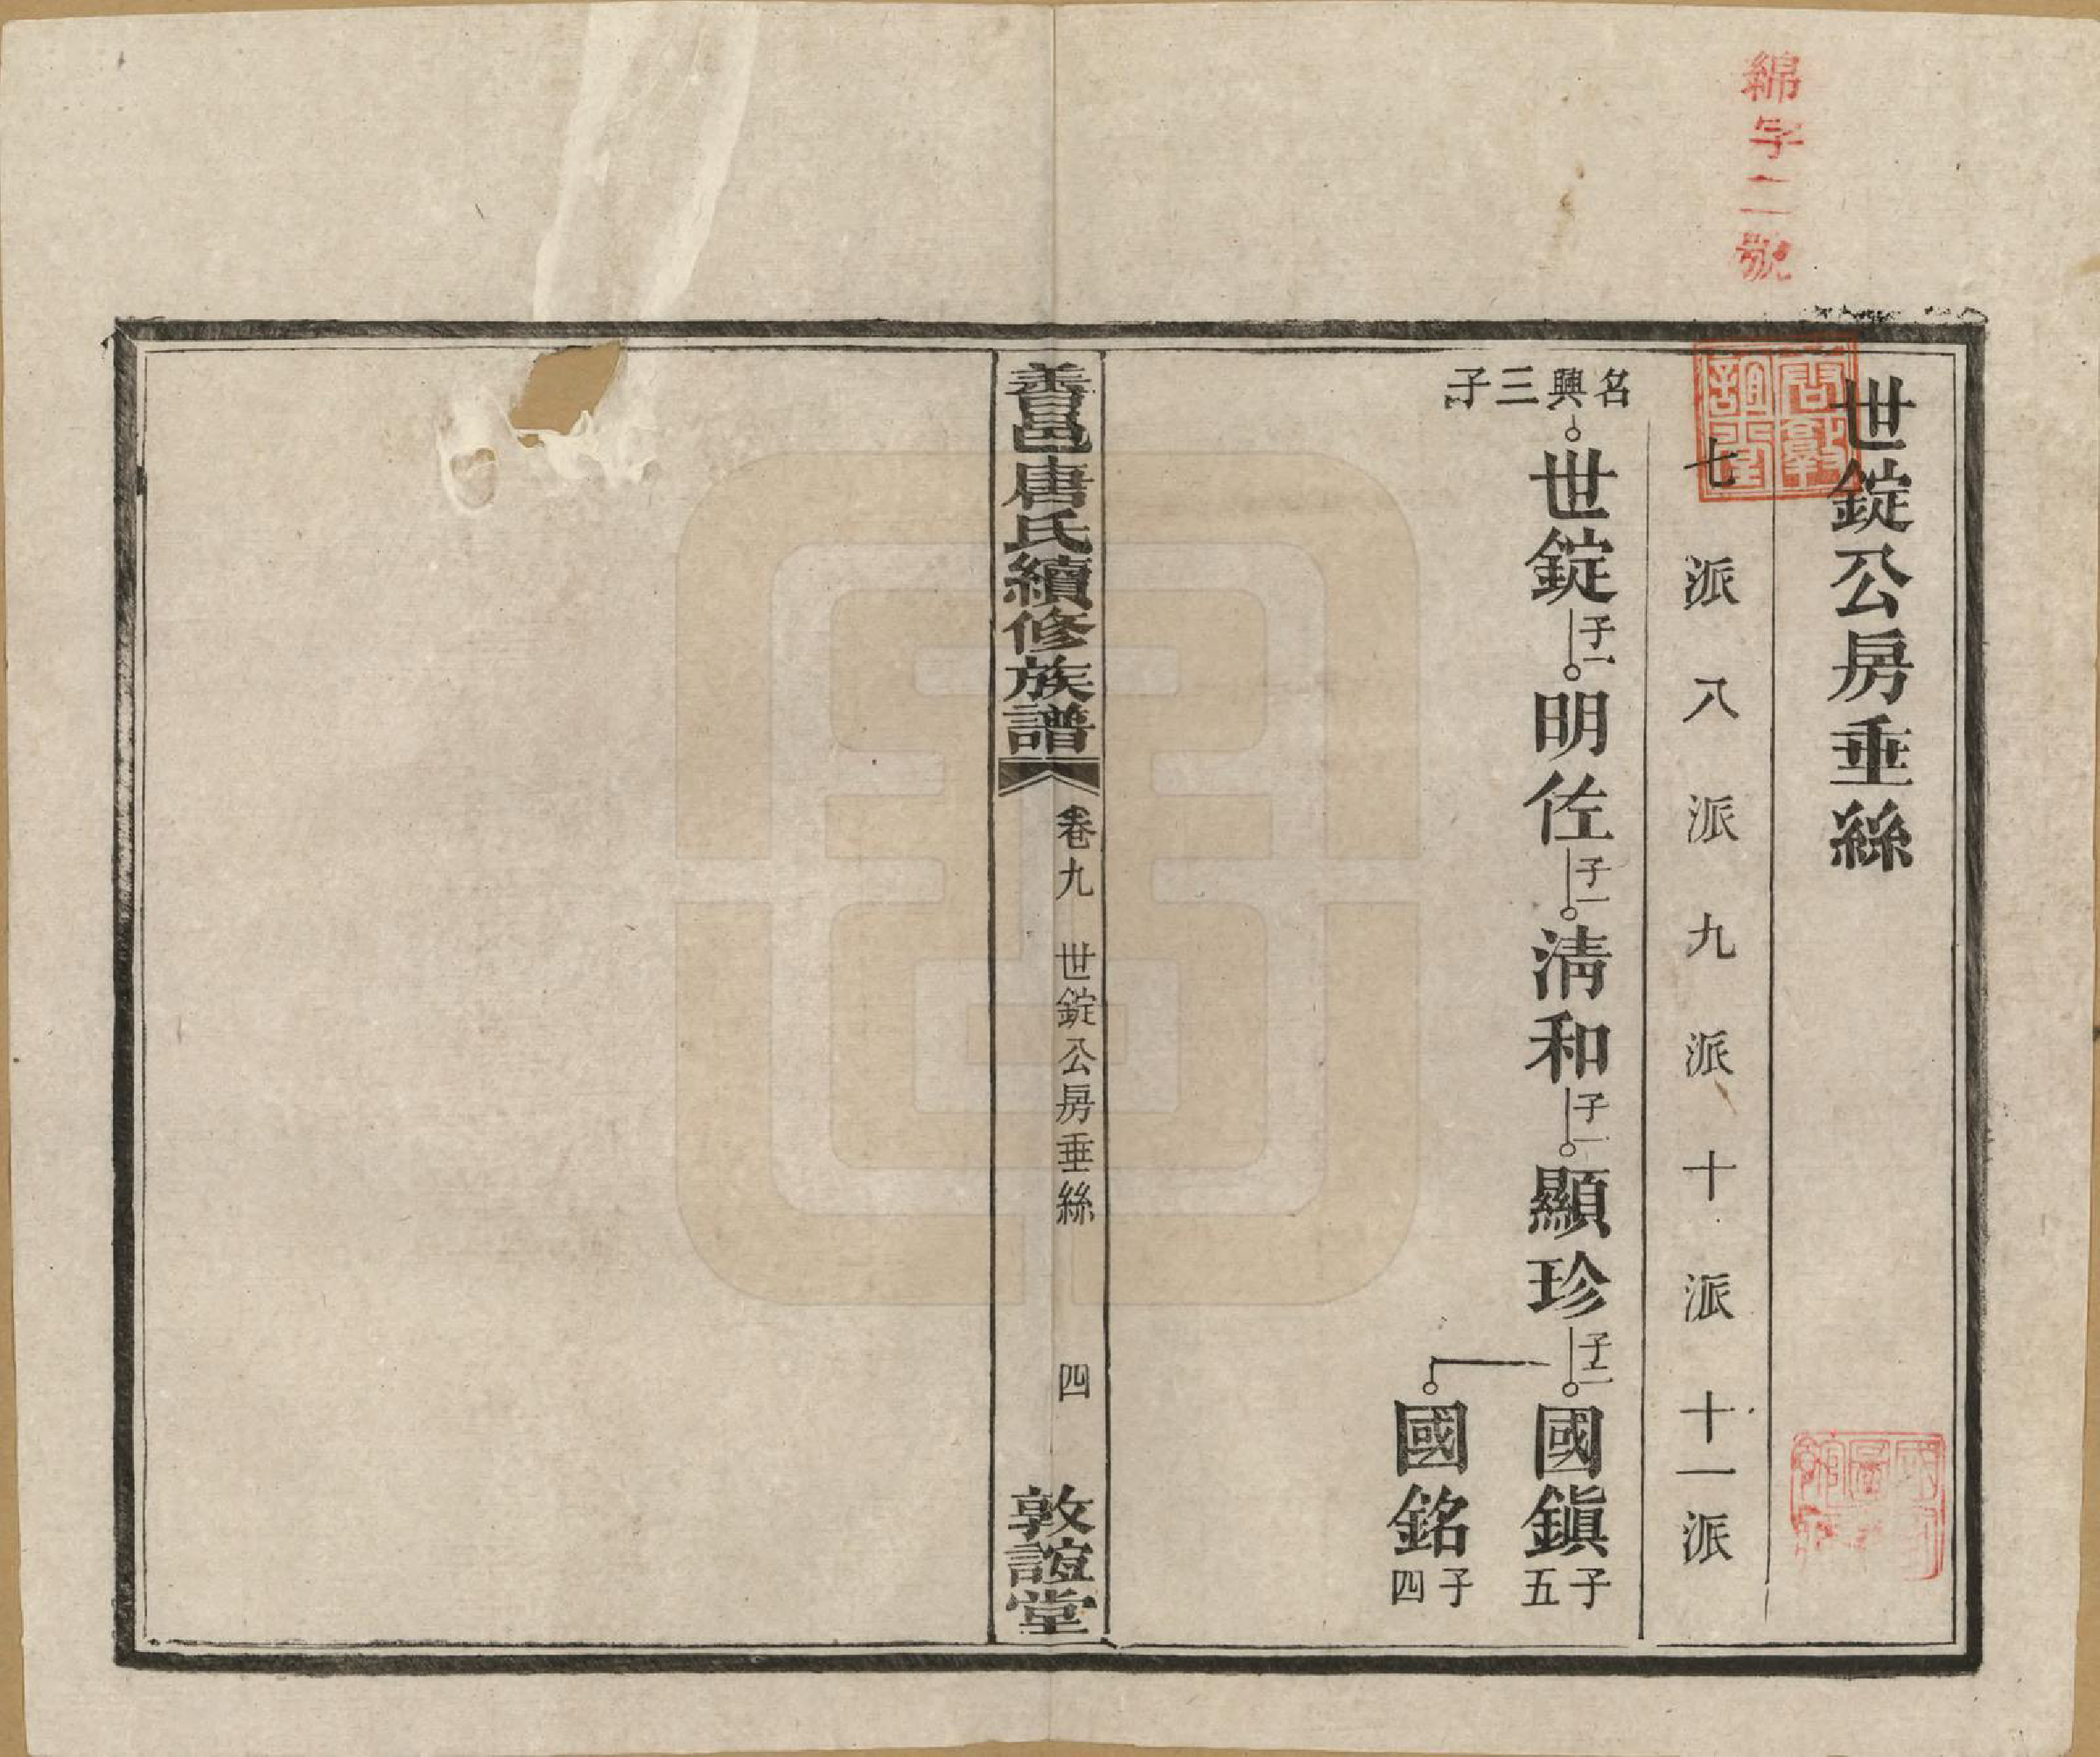 綿字二號
世錠公房垂絲
七派八派九派十派十一派
名興三子
世錠
子一
明佐
子一
清和
子一
顯珍
子二
國鎮
子五
國銘
子四
善邑唐氏續修族譜
卷九
世錠公房垂絲
四
敦誼堂